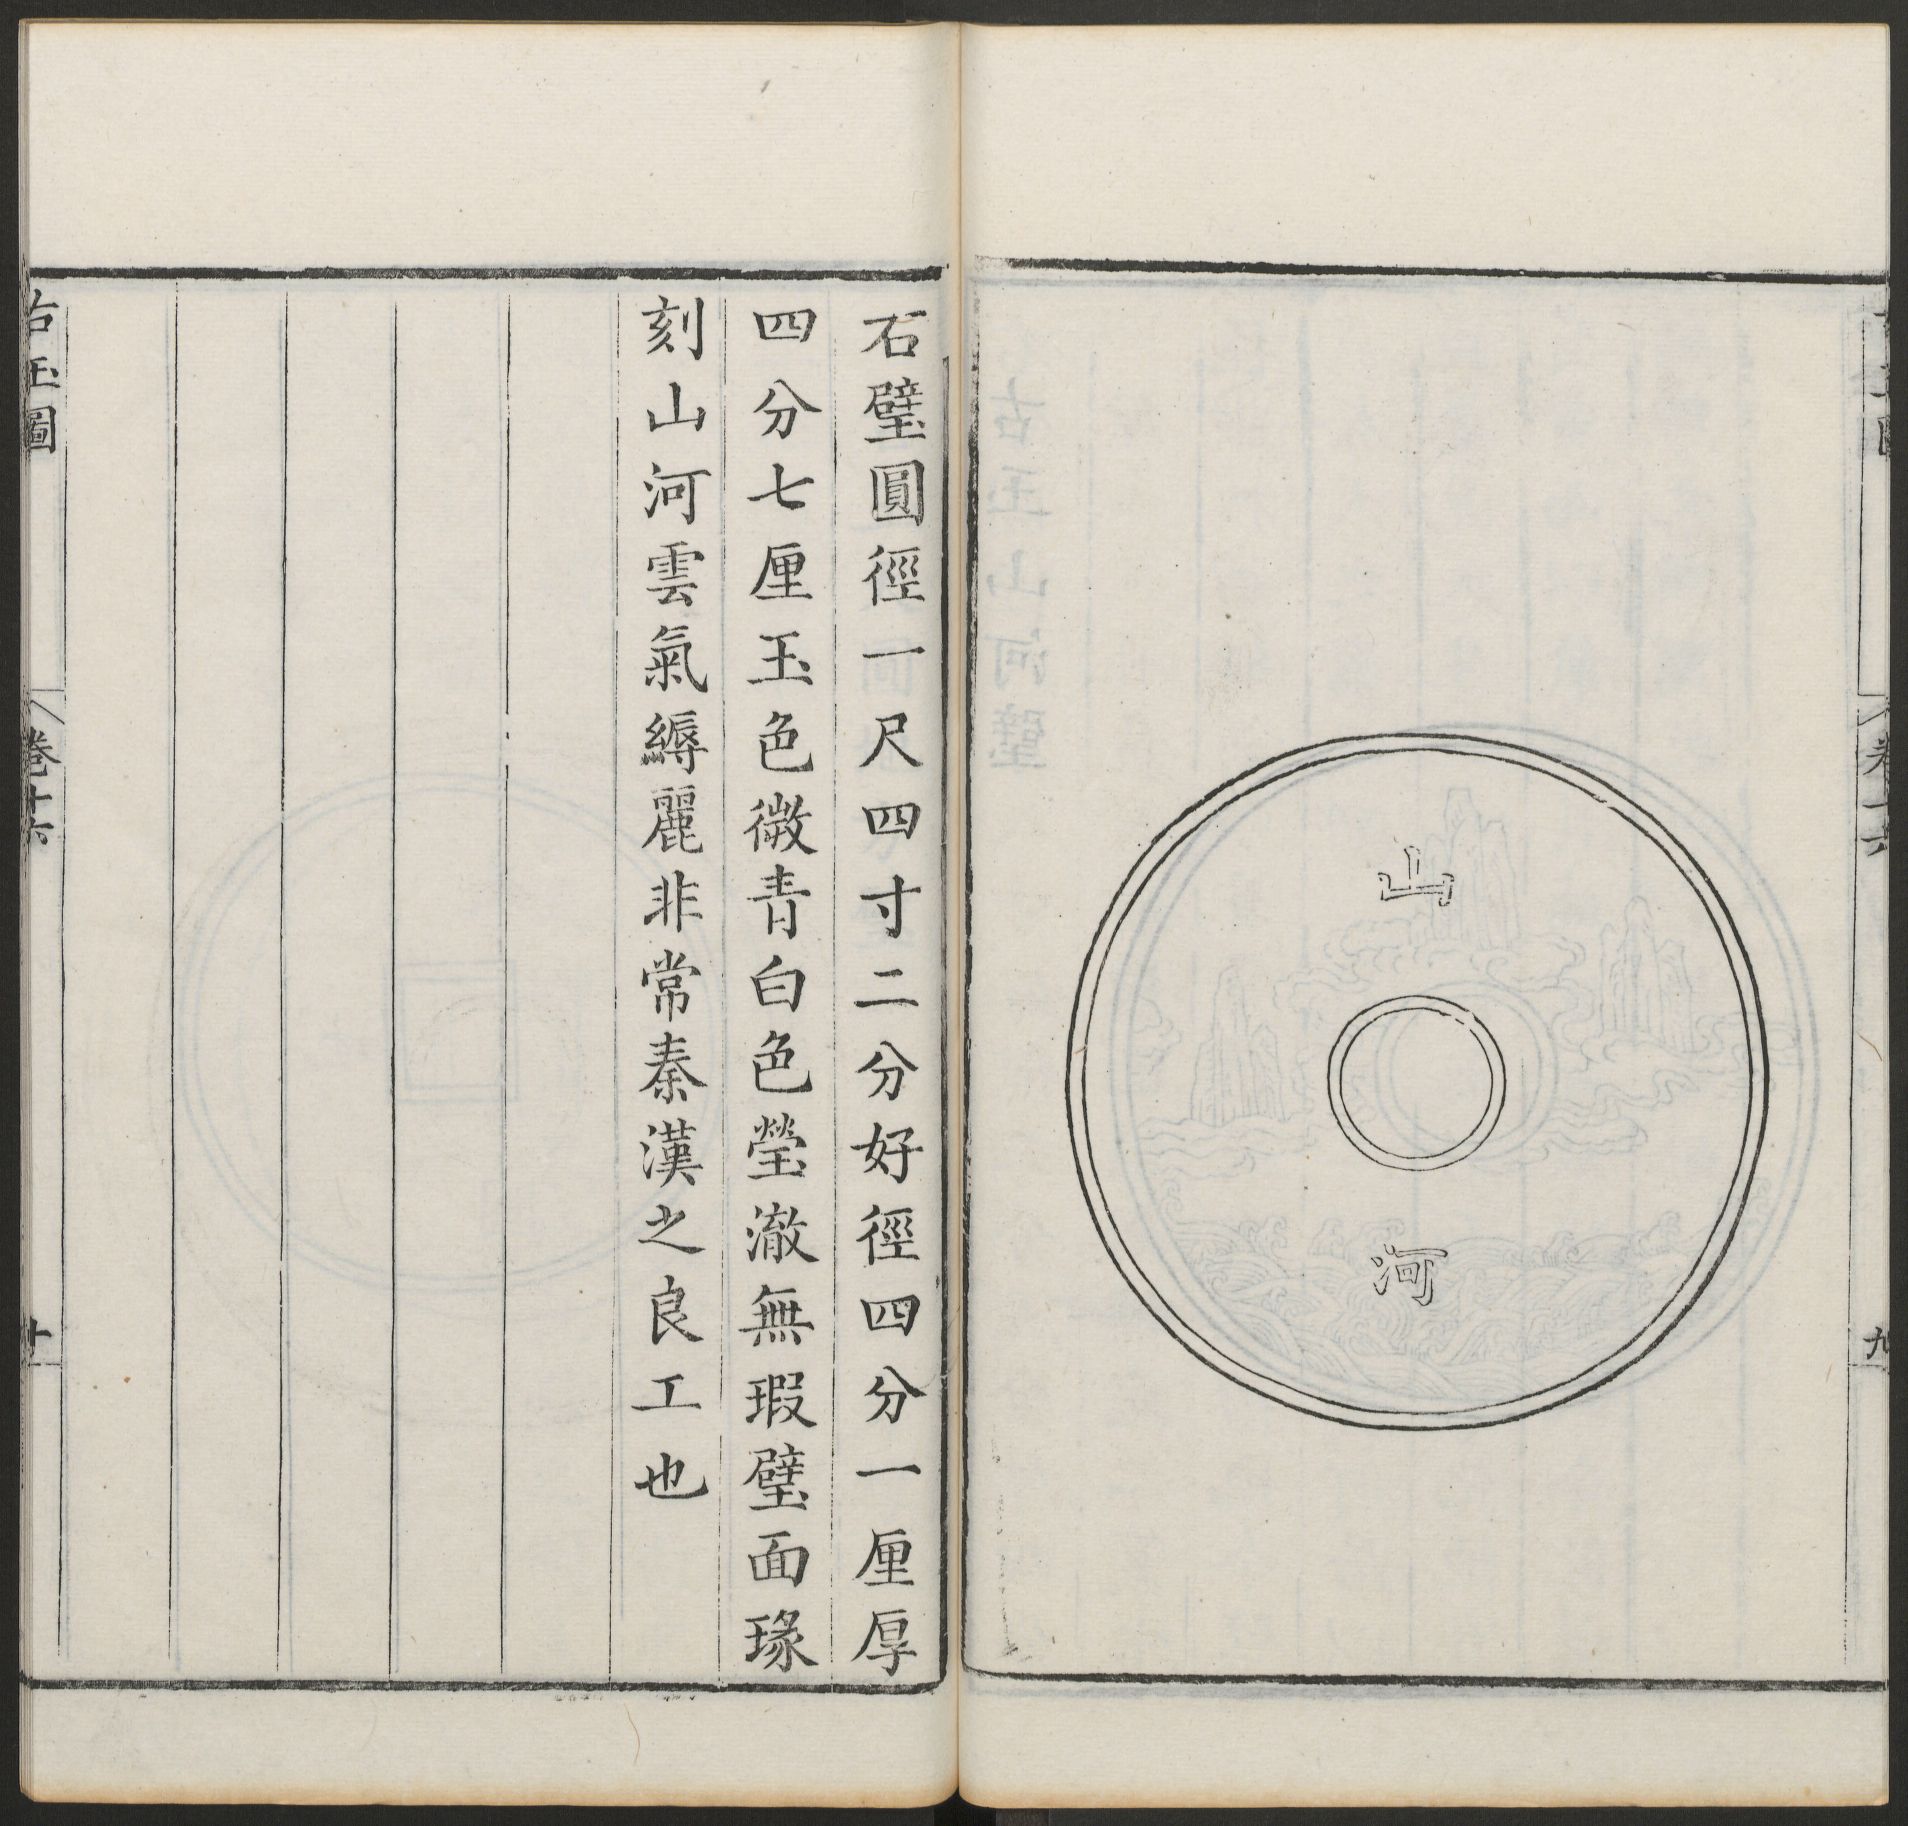 山
河
九
石璧圓徑一尺四寸二分好徑四分一厘厚
四分七厘玉色微青白色瑩澈無瑕璧面瑑
刻山河雲氣縟麗非常秦漢之良工也
古玉圖
卷十六
十